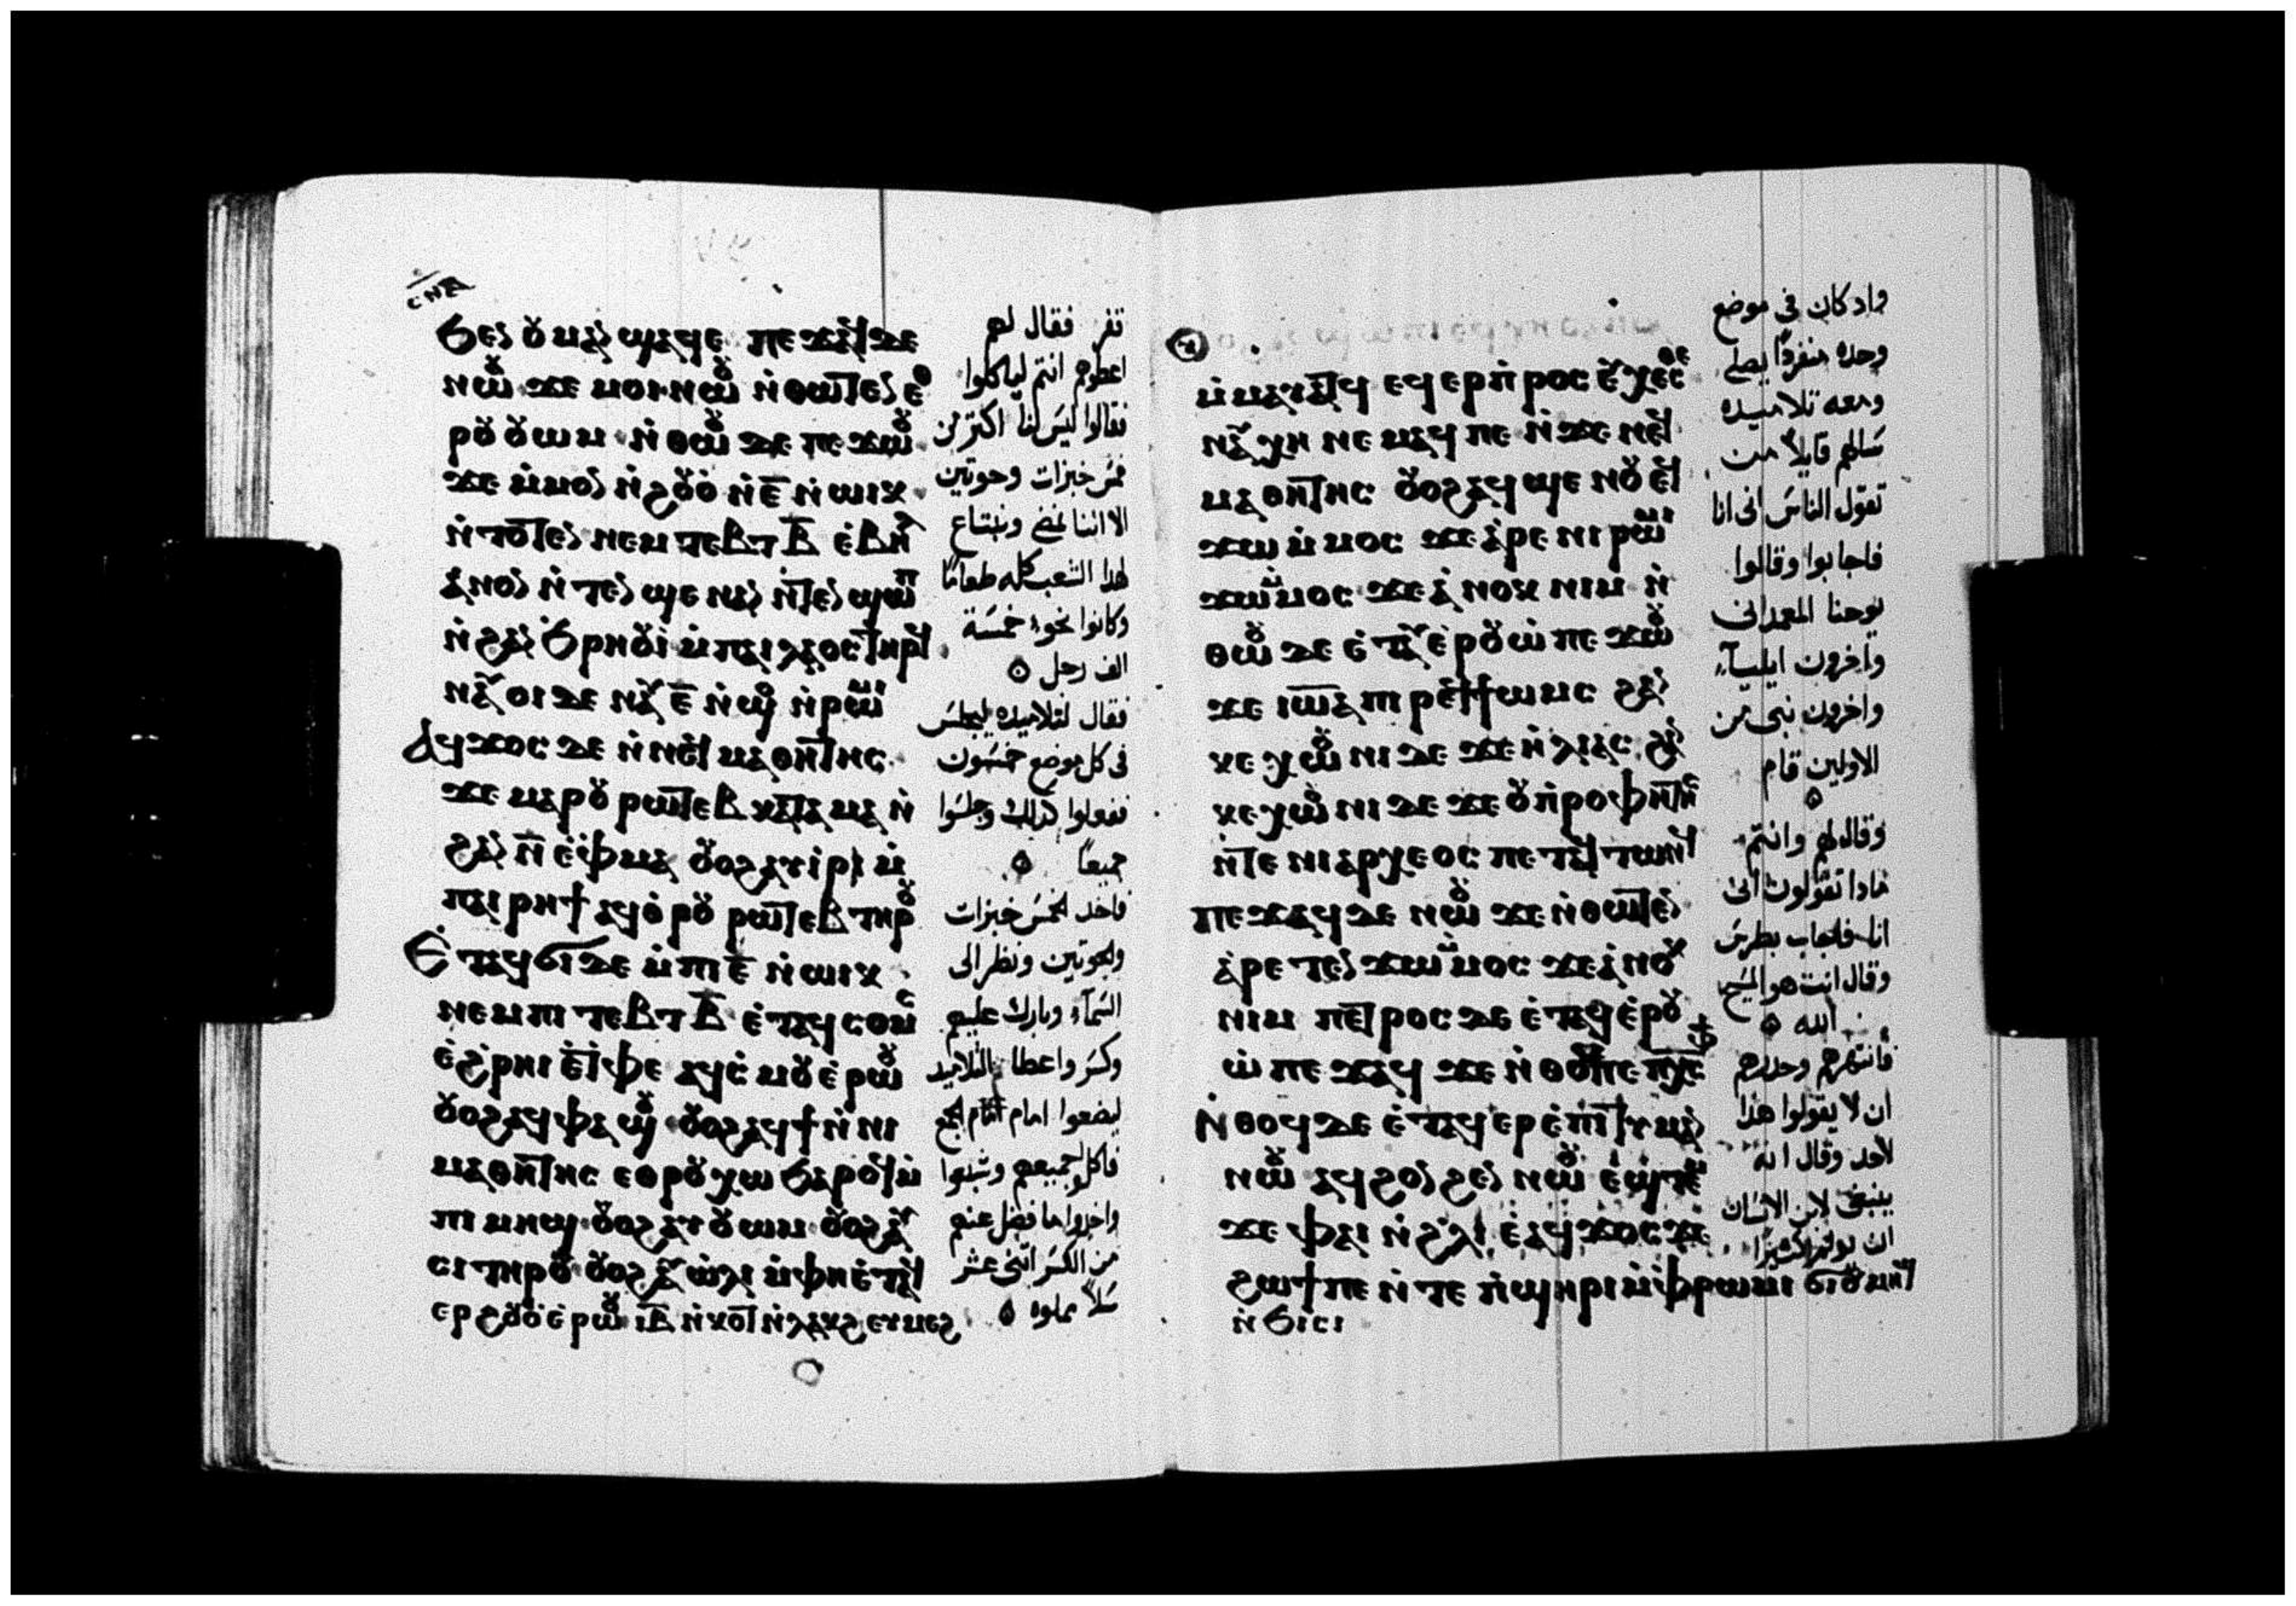 ϧⲉⲛ ⲟⲩⲙⲁⲛϣⲁϥⲉ ⲡⲉϫⲁϥ ⲇⲉ
ⲛⲱⲟⲩ ϫⲉ ⲙⲟⲓ ⲛⲱⲟⲩ ⲛ̀ⲑⲱⲧⲉⲛ ⲉⲑ
ⲣⲟⲩⲟⲩⲱⲙ ⲛ̀ⲑⲱⲟⲩ ⲇⲉ ⲡⲉϫⲱⲟⲩ
ϫⲉ ⲙ̀ⲙⲟⲛ ⲛ̀ϩⲟⲩⲟ̀ ⲛ̀ⲉ̅ ⲛ̀ⲱⲓⲕ
ⲛ̀ⲧⲟⲧⲉⲛ ⲛⲉⲙ ⲧⲉⲃⲧ ⲃ̅ ⲉ̀ⲃⲏⲗ
ⲁ̀ⲛⲟⲛ ⲛ̀ⲧⲉⲛϣⲉ ⲛⲁⲛ ⲛ̀ⲧⲉⲛϣⲱⲡ
ⲛ̀ϩⲁⲛϧⲣⲏⲟⲩⲓ̀ ⲙ̀ⲡⲁⲓⲗⲁⲟⲥ ⲧⲏⲣϥ
ⲛⲁⲩⲟⲓ ⲇⲉ ⲛⲁⲩ ⲉ̅ ⲛ̀ϣⲟ ⲛ̀ⲣⲱⲙⲓ
ⲁϥϫⲟⲥ ⲇⲉ ⲛ̀ⲛⲉϥⲙⲁⲑⲏⲧⲏⲥ
ϫⲉ ⲙⲁⲣⲟⲩⲣⲱⲧⲉⲃ ⲕⲁⲧⲁ ⲙⲁ ⲛ̀
ϩⲁⲛ ⲛ̅ ⲉ̀ⲫⲙⲁ ⲟⲩⲟϩ ⲁⲩⲓ̀ⲣⲓ ⲙ̀
ⲡⲁⲓⲣⲏϯ ⲁⲩⲑⲣⲟⲩⲣⲱⲧⲉⲃ ⲧⲏⲣⲟⲩ
ⲉ̀ⲧⲁϥϭⲓ ⲇⲉ ⲙ̀ⲡⲓⲉ̅ ⲛ̀ⲱⲓⲕ
ⲛⲉⲙ ⲡⲓⲧⲉⲃⲧ ⲃ̅ ⲉ̀ⲧⲁϥⲥⲟⲙⲥ
ⲉ̀ϩⲣⲏⲓ ⲉ̀ⲧⲫⲉ ⲁϥⲥ̀ⲙⲟⲩ ⲉ̀ⲣⲱⲟⲩ
ⲟⲩⲟϩ ⲁϥⲫⲁϣⲟⲩ ⲟⲩⲟϩ ⲁϥϯ ⲛ̀ⲛⲓ
ⲙⲁⲑⲏⲧⲏⲥ ⲉⲑⲣⲟⲩⲭⲱ ϧⲁⲣⲟⲧϥ ⲙ̀
ⲡⲓⲙⲏϣ ⲟⲩⲟϩ ⲁⲩⲟⲩⲱⲙ ⲟⲩⲟϩ ⲁⲩ
ⲥⲓ ⲧⲏⲣⲟⲩ ⲟⲩⲟϩ ⲁⲩⲱ̀ⲗⲓ ⲙ̀ⲫⲏⲉ̀ⲧⲁϥ
ⲉⲣϩⲟⲩⲟ̀ ⲉ̀ⲣⲱⲟⲩ ⲓ̅ⲃ̅ ⲛ̀ⲕⲟⲧ ⲛ̀ⲗⲁⲕϩ ⲉⲩⲙⲉϩ
قفر فقال لهم
اعطوهم انتم لياكلوا
فقالوا ليس لنا اكتر من
خمس خبزات وحوتين
الا اننا نمضي ونبتاع
لهذا الشعب كله طعامًا
وكانوا نحو خمسة
الف رجل
فقال لتلاميده ليجلس
في كل موضع خمسون
ففعلوا كذلك وجلسوا
جميعًا
فاخد الخمس خبزات
والحوتين ونظر الى
السمآء وبارك عليهم
وكسر واعطا التلاميد
ليضعوا امام الجمع
فاكل جميعهم وشبعوا
واخدوا ما فضل عنهم
من الكسر اتنى عشر
سلاً مملوه
ⲙ̀ⲙⲁⲩⲁⲧϥ ⲉϥⲉⲣⲡ̀ⲣⲟⲥⲉⲩⲭⲉⲥⲑⲉ
ⲛⲁⲩⲭⲏ ⲛⲉⲙⲁϥ ⲡⲉ ⲛ̀ϫⲉ ⲛⲉϥ
ⲙⲁⲑⲏⲧⲏⲥ ⲟⲩⲟϩ ⲁϥϣⲉⲛⲟⲩ ⲉϥ
ϫⲱ ⲙ̀ⲙⲟⲥ ϫⲉ ⲁ̀ⲣⲉ ⲛⲓⲣⲱⲙⲓ
ϫⲱ ⲙ̀ⲙⲟⲥ ϫⲉ ⲁ̀ⲛⲟⲕ ⲛⲓⲙ ⲛ̀
ⲑⲱⲟⲩ ⲇⲉ ⲉ̀ⲧⲁⲩⲉ̀ⲣⲟⲩⲱ̀ ⲡⲉϫⲱⲟⲩ
ϫⲉ ⲓⲱ̅ⲁ̅ ⲡⲓⲣⲉϥϯⲱⲙⲥ ϩⲁⲛ
ⲕⲉⲭⲱⲟⲩⲛⲓ ⲇⲉ ϫⲉ ⲛ̀ⲗⲓⲁⲥ ϩⲁⲛ
ⲕⲉⲭⲱⲟⲩⲛⲓ ⲇⲉ ϫⲉ ⲟⲩⲡ̀ⲣⲟⲫⲏⲧⲏⲥ
ⲛ̀ⲧⲉ ⲛⲓⲁⲣⲭⲉⲟⲥ ⲡⲉⲧⲁϥⲧⲱⲛϥ
ⲡⲉϫⲁϥ ⲇⲉ ⲛⲱⲟⲩ ϫⲉ ⲛ̀ⲑⲱⲧⲉⲛ
ⲁ̀ⲣⲉⲧⲉⲛϫⲱ ⲙ̀ⲙⲟⲥ ϫⲉ ⲁ̀ⲛⲟⲕ
ⲛⲓⲙ ⲡⲉⲧⲣⲟⲥ ⲇⲉ ⲉ̀ⲧⲁϥⲉ̀ⲣⲟⲩ
ⲱ̀ ⲡⲉϫⲁϥ ϫⲉ ⲛ̀ⲑⲟⲕ ⲡⲉ ⲡⲭ̅ⲥ̅ ⲫϯ
ⲛ̀ⲑⲟϥ ⲇⲉ ⲉ̀ⲧⲁϥⲉⲣⲉ̀ⲡⲓⲧⲓⲙⲁⲛ
ⲛⲱⲟⲩ ⲁϥϩⲟⲛϩⲉⲛ ⲛⲱⲟⲩ ⲉ̀ϣ̀ⲧⲉⲙ
ϫⲉ ⲫⲁⲓ ⲛ̀ϩⲗⲓ ⲉ̀ⲁϥϫⲟⲥ ϫⲉ
ϩⲱϯ ⲡⲉ ⲛ̀ⲧⲉ ⲡ̀ϣⲏⲣⲓ ⲙ̀ⲫ̀ⲣⲱⲙⲓ ϭⲓ ⲟⲩⲙⲏϣ
ⲛ̀ϧⲓⲥⲓ
واد كان في موضع
وحده منفردًا يصلي
ومعه تلاميده
سالهم قايلاً من
تقول الناس اني انا
فاجابوا وقالوا
يوحنا المعمداني
وآخرون ايليآء
واخرون نبى من
الاولين قام
وقال لهم وانتم
مادا تقولون اني
انا فاجاب بطرس
وقال انت هو المسيح
الله
فانتهرهم وحدرهم
ان لا يقولوا هذا
لاحد وقال انه
ينبغي لابن الانسان
ان يولم كثيرًا